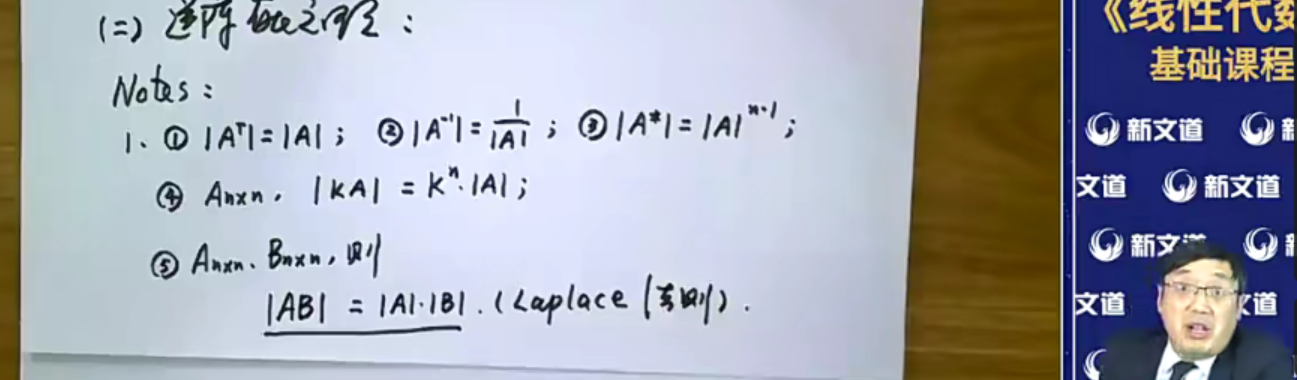 (二) 逆阵
Notes:
1、① |Aᵀ|=|A|; ② |A⁻¹|=1/|A|; ③ |A*|=|A|ⁿ⁻¹;
④ Aₙₓₙ, |KA| = Kⁿ·|A|;
⑤ Aₙₓₙ、Bₙₓₙ, 则
|AB| = |A|·|B|. (Laplace 法则).
《线性代数
基础课程
新文道
文道 新文道
新文道
文道 文道